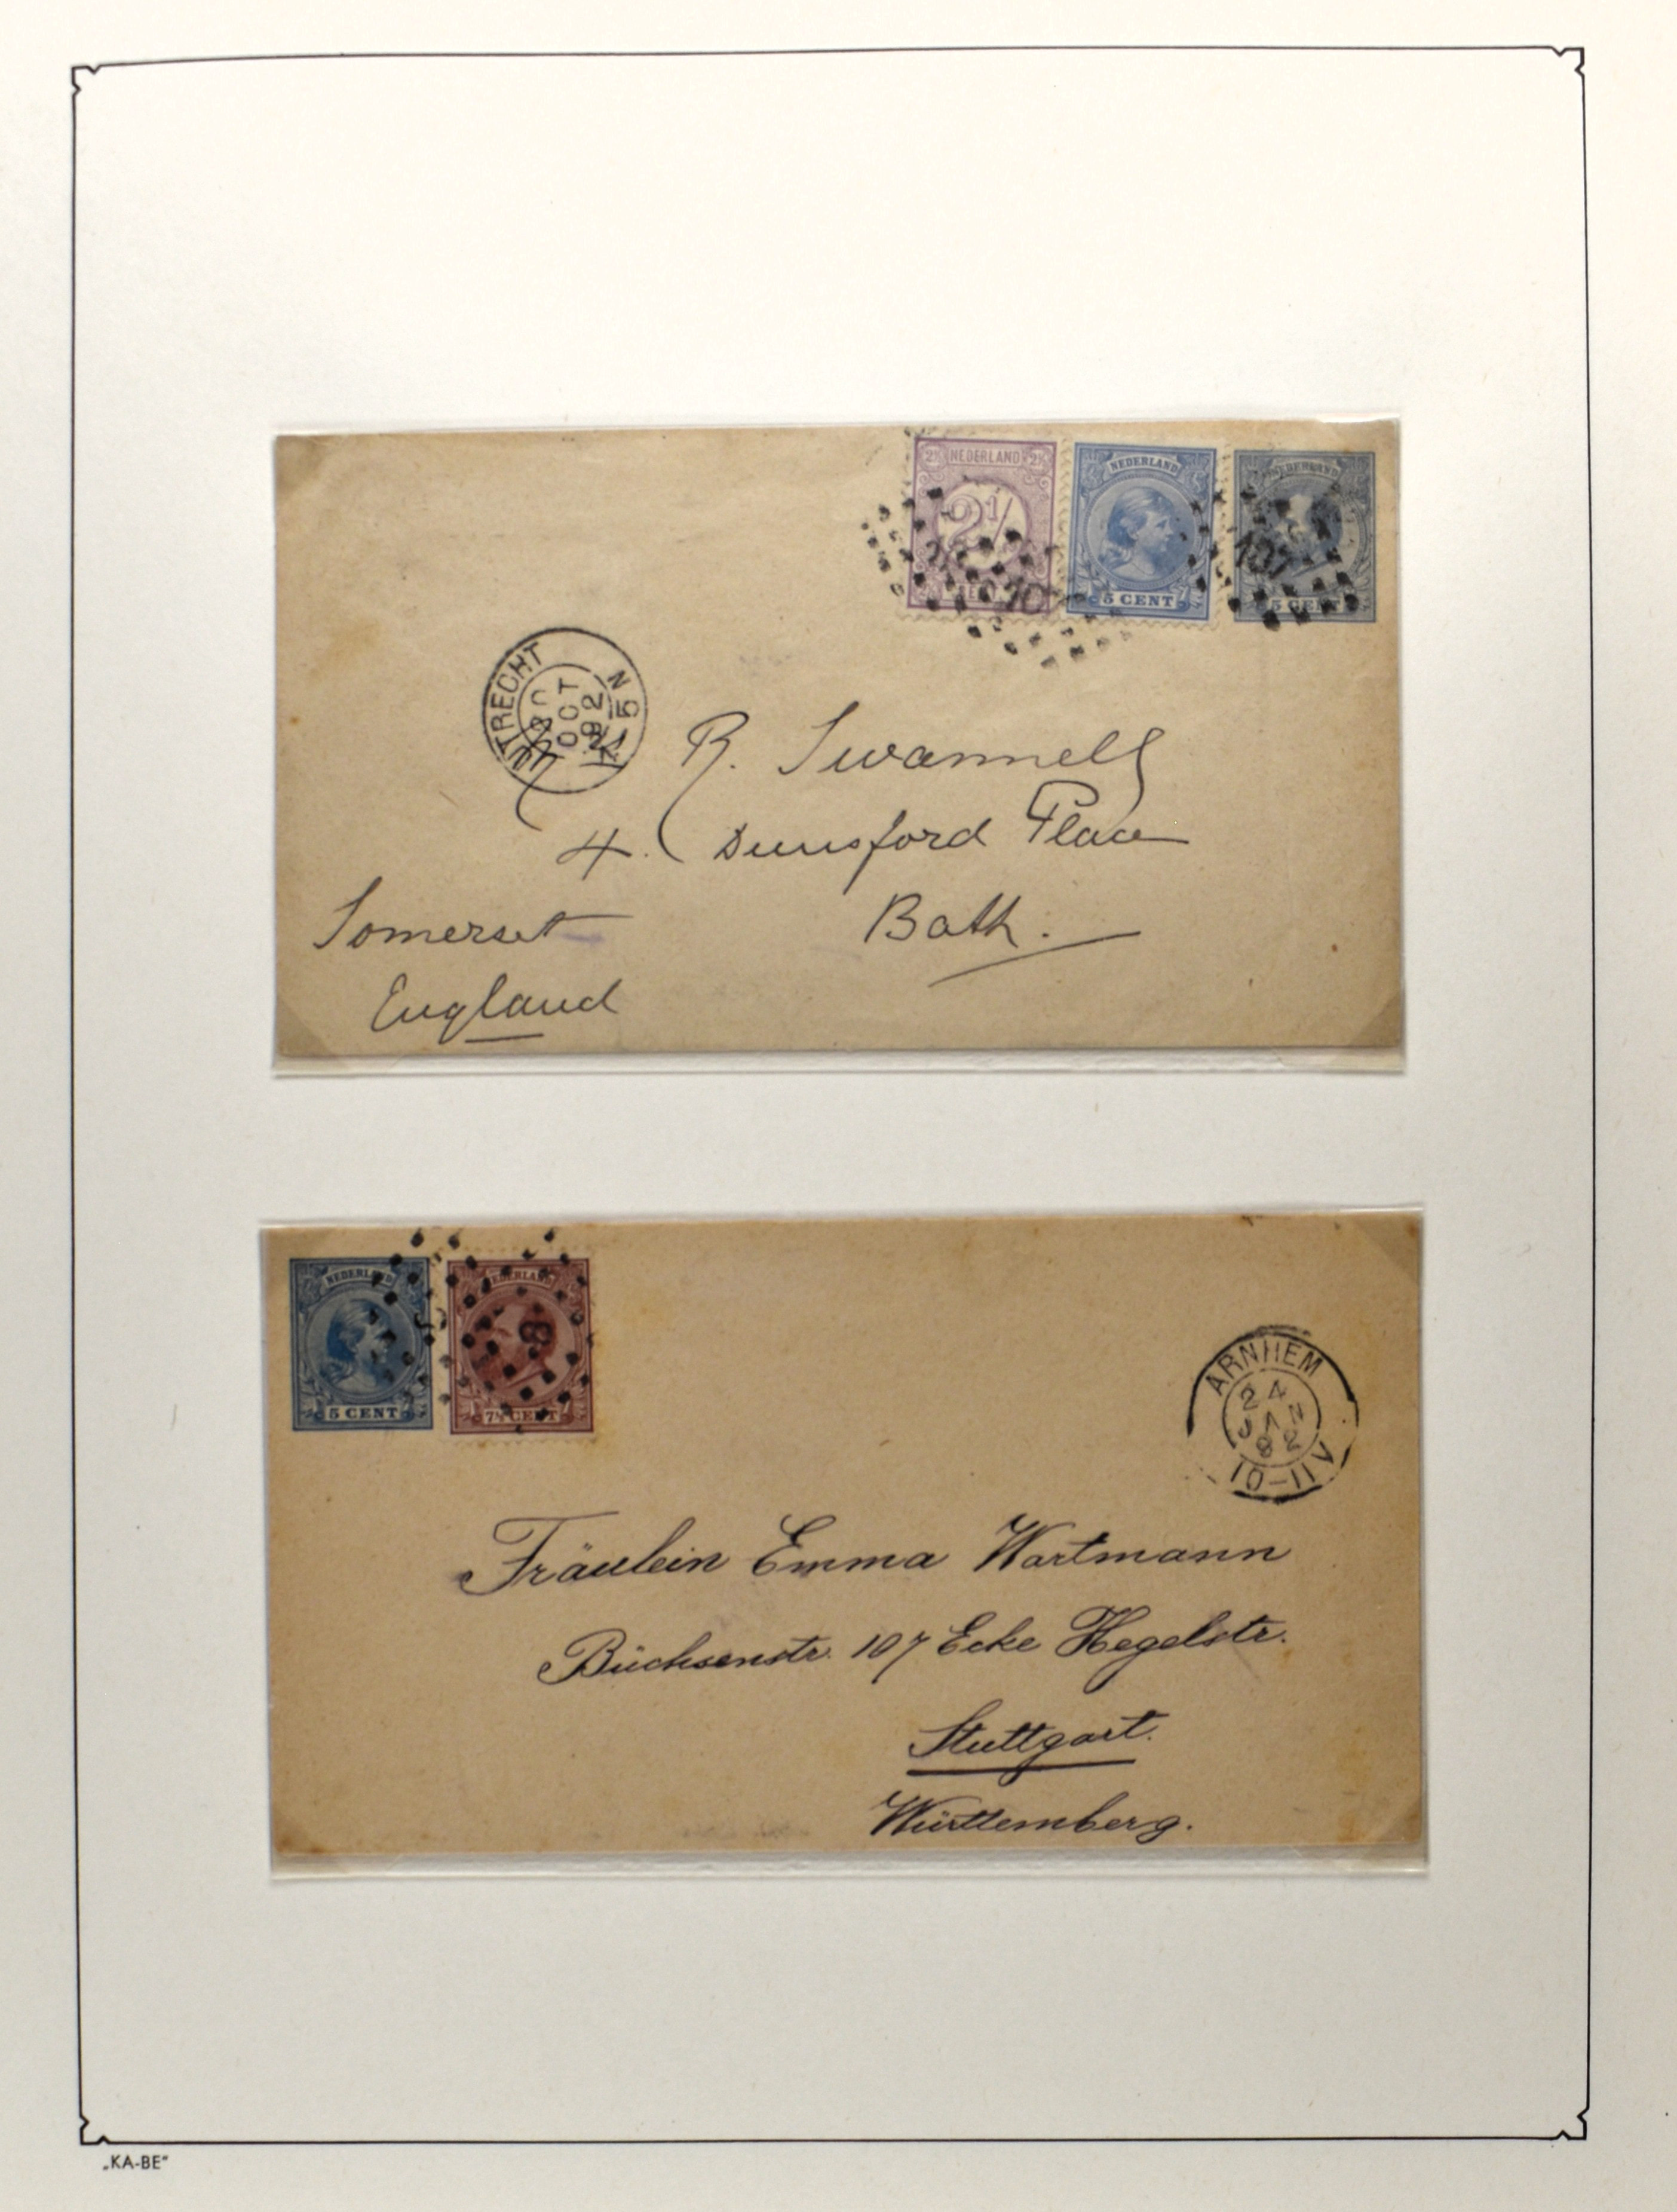 NEDERLAND
2½ 2½
2½
NEDERLAND
5 CENT
NEDERLAND
5 CENT
107
UTRECHT
OCT
92
N 5
R. Swannell
4. Dunsford Place
Bath.
Somerset
England
NEDERLAND
5 CENT
NEDERLAND
7½ CENT
ARNHEM
24
JAN
92
10-11V
Fräulein Emma Wartmann
Büchsenstr. 107 Ecke Hegelstr.
Stuttgart.
Württemberg.
„KA-BE"